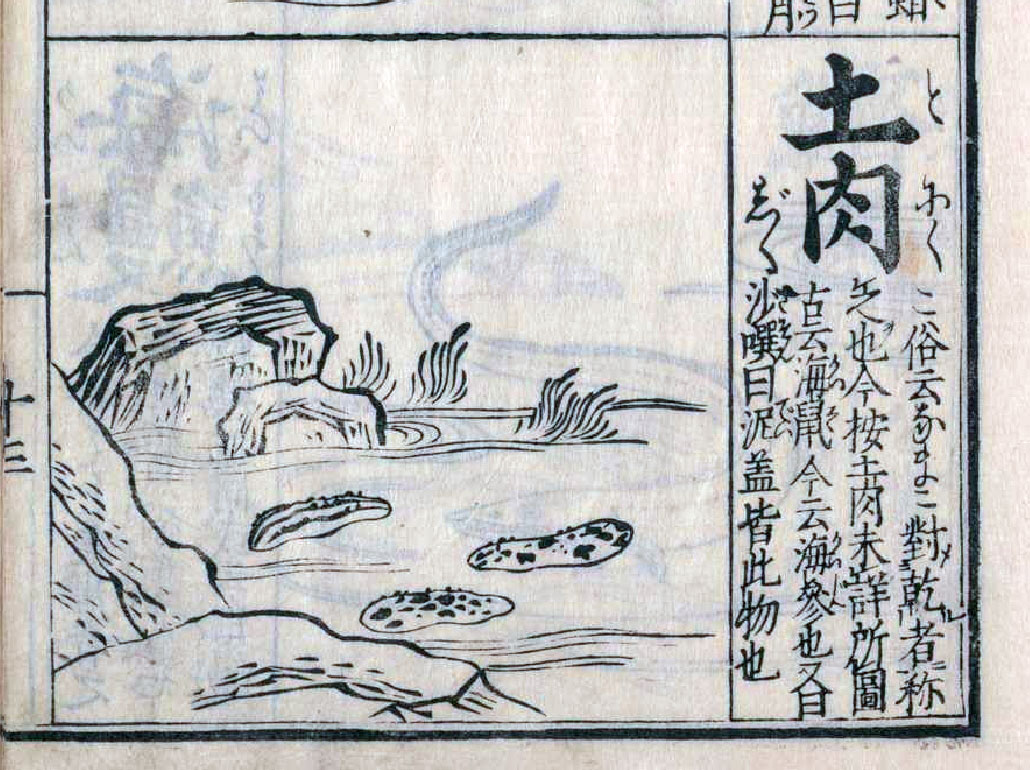 土肉
とにく
こ俗云なまこ對乾者称
之也今按土肉未詳所圖
古云海鼠今云海參也又曰
沙噀曰泥盖皆此物也
十三